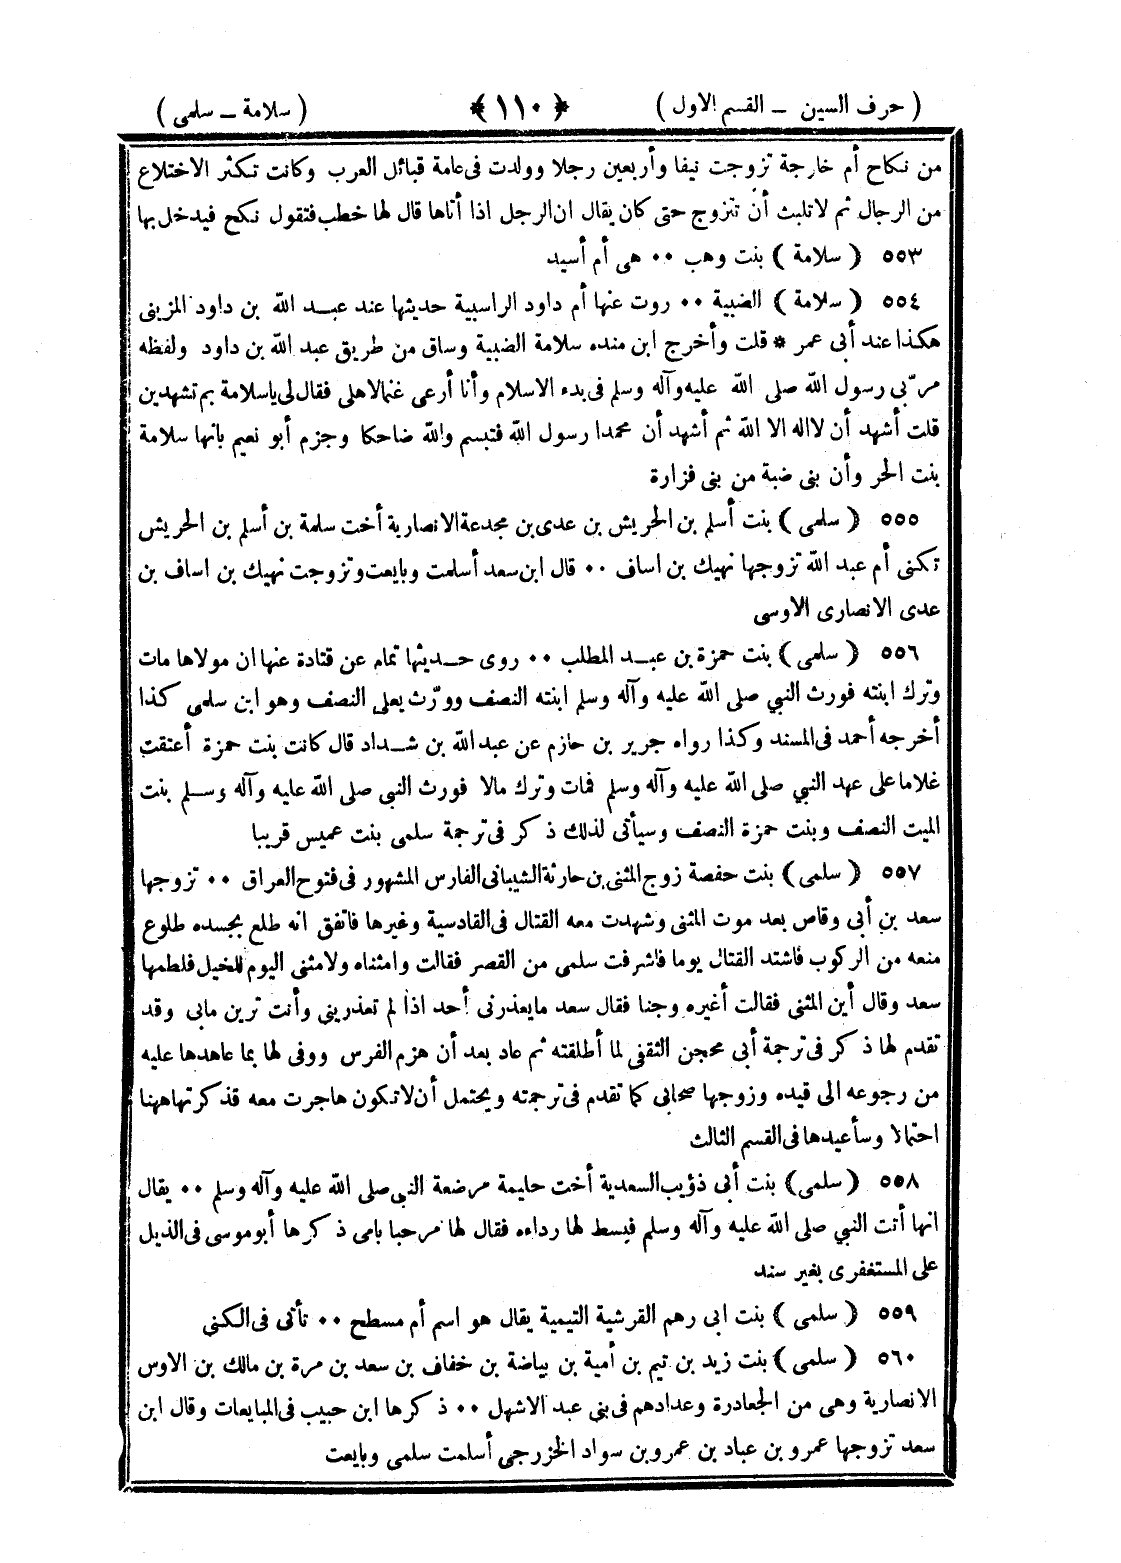 ( حرف السين ــ القسم الاول )
﴿ ١١٠ ﴾
( سلامة ــ سلمى )
من نكاح أم خارجة تزوجت نيفا وأربعين رجلا وولدت فى عامة قبائل العرب وكانت تكثر الاختلاع
من الرجال ثم لاتلبث أن تتزوج حتى كان يقال ان الرجل اذا أتاها قال لها خطب فتقول نكح فيدخل بها
٥٥٣ ( سلامة ) بنت وهب ٠٠ هى أم أسيد
٥٥٤ ( سلامة ) الضبية ٠٠ روت عنها أم داود الراسبية حديثها عند عبد الله بن داود المزينى
هكذا عند أبى عمر * قلت وأخرج ابن منده سلامة الضبية وساق من طريق عبد الله بن داود ولفظه
مر بى رسول الله صلى الله عليه وآله وسلم فى بدء الاسلام وأنا أرعى غنما لاهلى فقال لى ياسلامة بم تشهدين
قلت أشهد أن لااله الا الله ثم أشهد أن محمدا رسول الله فتبسم والله ضاحكا وجزم أبو نعيم بانها سلامة
بنت الحر وأن بنى ضبة من بنى فزارة
٥٥٥ ( سلمى ) بنت أسلم بن الحريش بن عدى بن مجدعة الانصارية أخت سلمة بن أسلم بن الحريش
تكنى أم عبد الله تزوجها نهيك بن اساف ٠٠ قال ابن سعد أسلمت وبايعت وتزوجت نهيك بن اساف بن
عدى الانصارى الاوسى
٥٥٦ ( سلمى ) بنت حمزة بن عبد المطلب ٠٠ روى حديثها تمام عن قتادة عنها ان مولاها مات
وترك ابنته فورث النبي صلى الله عليه وآله وسلم ابنته النصف وورّث يعلى النصف وهو ابن سلمى كذا
أخرجه أحمد فى المسند وكذا رواه جرير بن حازم عن عبد الله بن شداد قال كانت بنت حمزة أعتقت
غلاما على عهد النبي صلى الله عليه وآله وسلم فمات وترك مالا فورث النبى صلى الله عليه وآله وسلم بنت
الميت النصف وبنت حمزة النصف وسيأتى لذلك ذكر فى ترجمة سلمى بنت عميس قريبا
٥٥٧ ( سلمى ) بنت حفصة زوج المثنى بن حارثة الشيبانى الفارس المشهور فى فتوح العراق ٠٠ تزوجها
سعد بن أبى وقاص بعد موت المثنى وشهدت معه القتال فى القادسية وغيرها فاتفق انه طلع بجسده طلوع
منعه من الركوب فاشتد القتال يوما فاشرفت سلمى من القصر فقالت وامثناه ولامثنى اليوم للخيل فلطمها
سعد وقال أين المثنى فقالت أغيره وجنا فقال سعد مايعذرنى أحد اذا لم تعذرينى وأنت ترين مابى وقد
تقدم لها ذكر فى ترجمة أبى محجن الثقفى لما أطلقته ثم عاد بعد أن هزم الفرس ووفى لها بما عاهدها عليه
من رجوعه الى قيده وزوجها صحابى كما تقدم فى ترجمته ويحتمل أن لاتكون هاجرت معه فذكرتها ههنا
احتمالا وسأعيدها فى القسم الثالث
٥٥٨ ( سلمى ) بنت أبى ذؤيب السعدية أخت حليمة مرضعة النبى صلى الله عليه وآله وسلم ٠٠ يقال
انها أتت النبي صلى الله عليه وآله وسلم فبسط لها رداءه فقال لها مرحبا بامى ذكرها أبو موسى فى الذيل
على المستغفرى بغير سند
٥٥٩ ( سلمى ) بنت ابى رهم القرشية التيمية يقال هو اسم أم مسطح ٠٠ تأتى فى الكنى
٥٦٠ ( سلمى ) بنت زيد بن تيم بن أمية بن بياضة بن خفاف بن سعد بن مرة بن مالك بن الاوس
الانصارية وهى من الجعادرة وعدادهم فى بنى عبد الاشهل ٠٠ ذكرها ابن حبيب فى المبايعات وقال ابن
سعد تزوجها عمرو بن عباد بن عمرو بن سواد الخزرجى أسلمت سلمى وبايعت